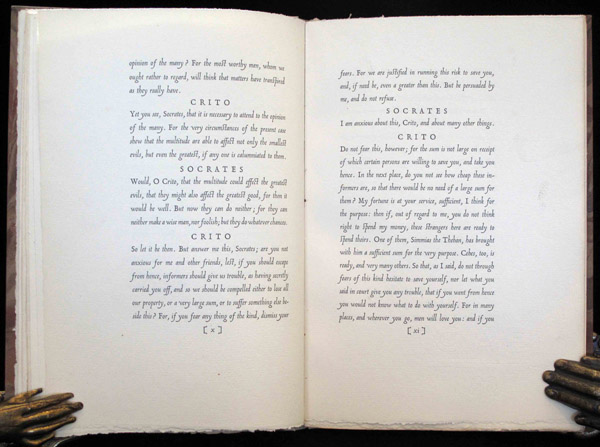 opinion of the many? For the most worthy men, whom we
ought rather to regard, will think that matters have transpired
as they really have.
CRITO
Yet you see, Socrates, that it is necessary to attend to the opinion
of the many. For the very circumstances of the present case
show that the multitude are able to affect not only the smallest
evils, but even the greatest, if any one is calumniated to them.
SOCRATES
Would, O Crito, that the multitude could affect the greatest
evils, that they might also affect the greatest good, for then it
would be well. But now they can do neither; for they can
neither make a wise man, nor foolish; but they do whatever chances.
CRITO
So let it be then. But answer me this, Socrates; are you not
anxious for me and other friends, lest, if you should escape
from hence, informers should give us trouble, as having secretly
carried you off, and so we should be compelled either to lose all
our property, or a very large sum, or to suffer something else be-
side this? For, if you fear any thing of the kind, dismiss your
[ x ]
fears. For we are justified in running this risk to save you,
and, if need be, even a greater than this. But be persuaded by
me, and do not refuse.
SOCRATES
I am anxious about this, Crito, and about many other things.
CRITO
Do not fear this, however; for the sum is not large on receipt
of which certain persons are willing to save you, and take you
hence. In the next place, do you not see how cheap these in-
formers are, so that there would be no need of a large sum for
them? My fortune is at your service, sufficient, I think for
the purpose: then if, out of regard to me, you do not think
right to spend my money, these strangers here are ready to
spend theirs. One of them, Simmias the Theban, has brought
with him a sufficient sum for the very purpose. Cebes, too, is
ready, and very many others. So that, as I said, do not through
fears of this kind hesitate to save yourself, nor let what you
said in court give you any trouble, that if you went from hence
you would not know what to do with yourself. For in many
places, and wherever you go, men will love you: and if you
[ xi ]